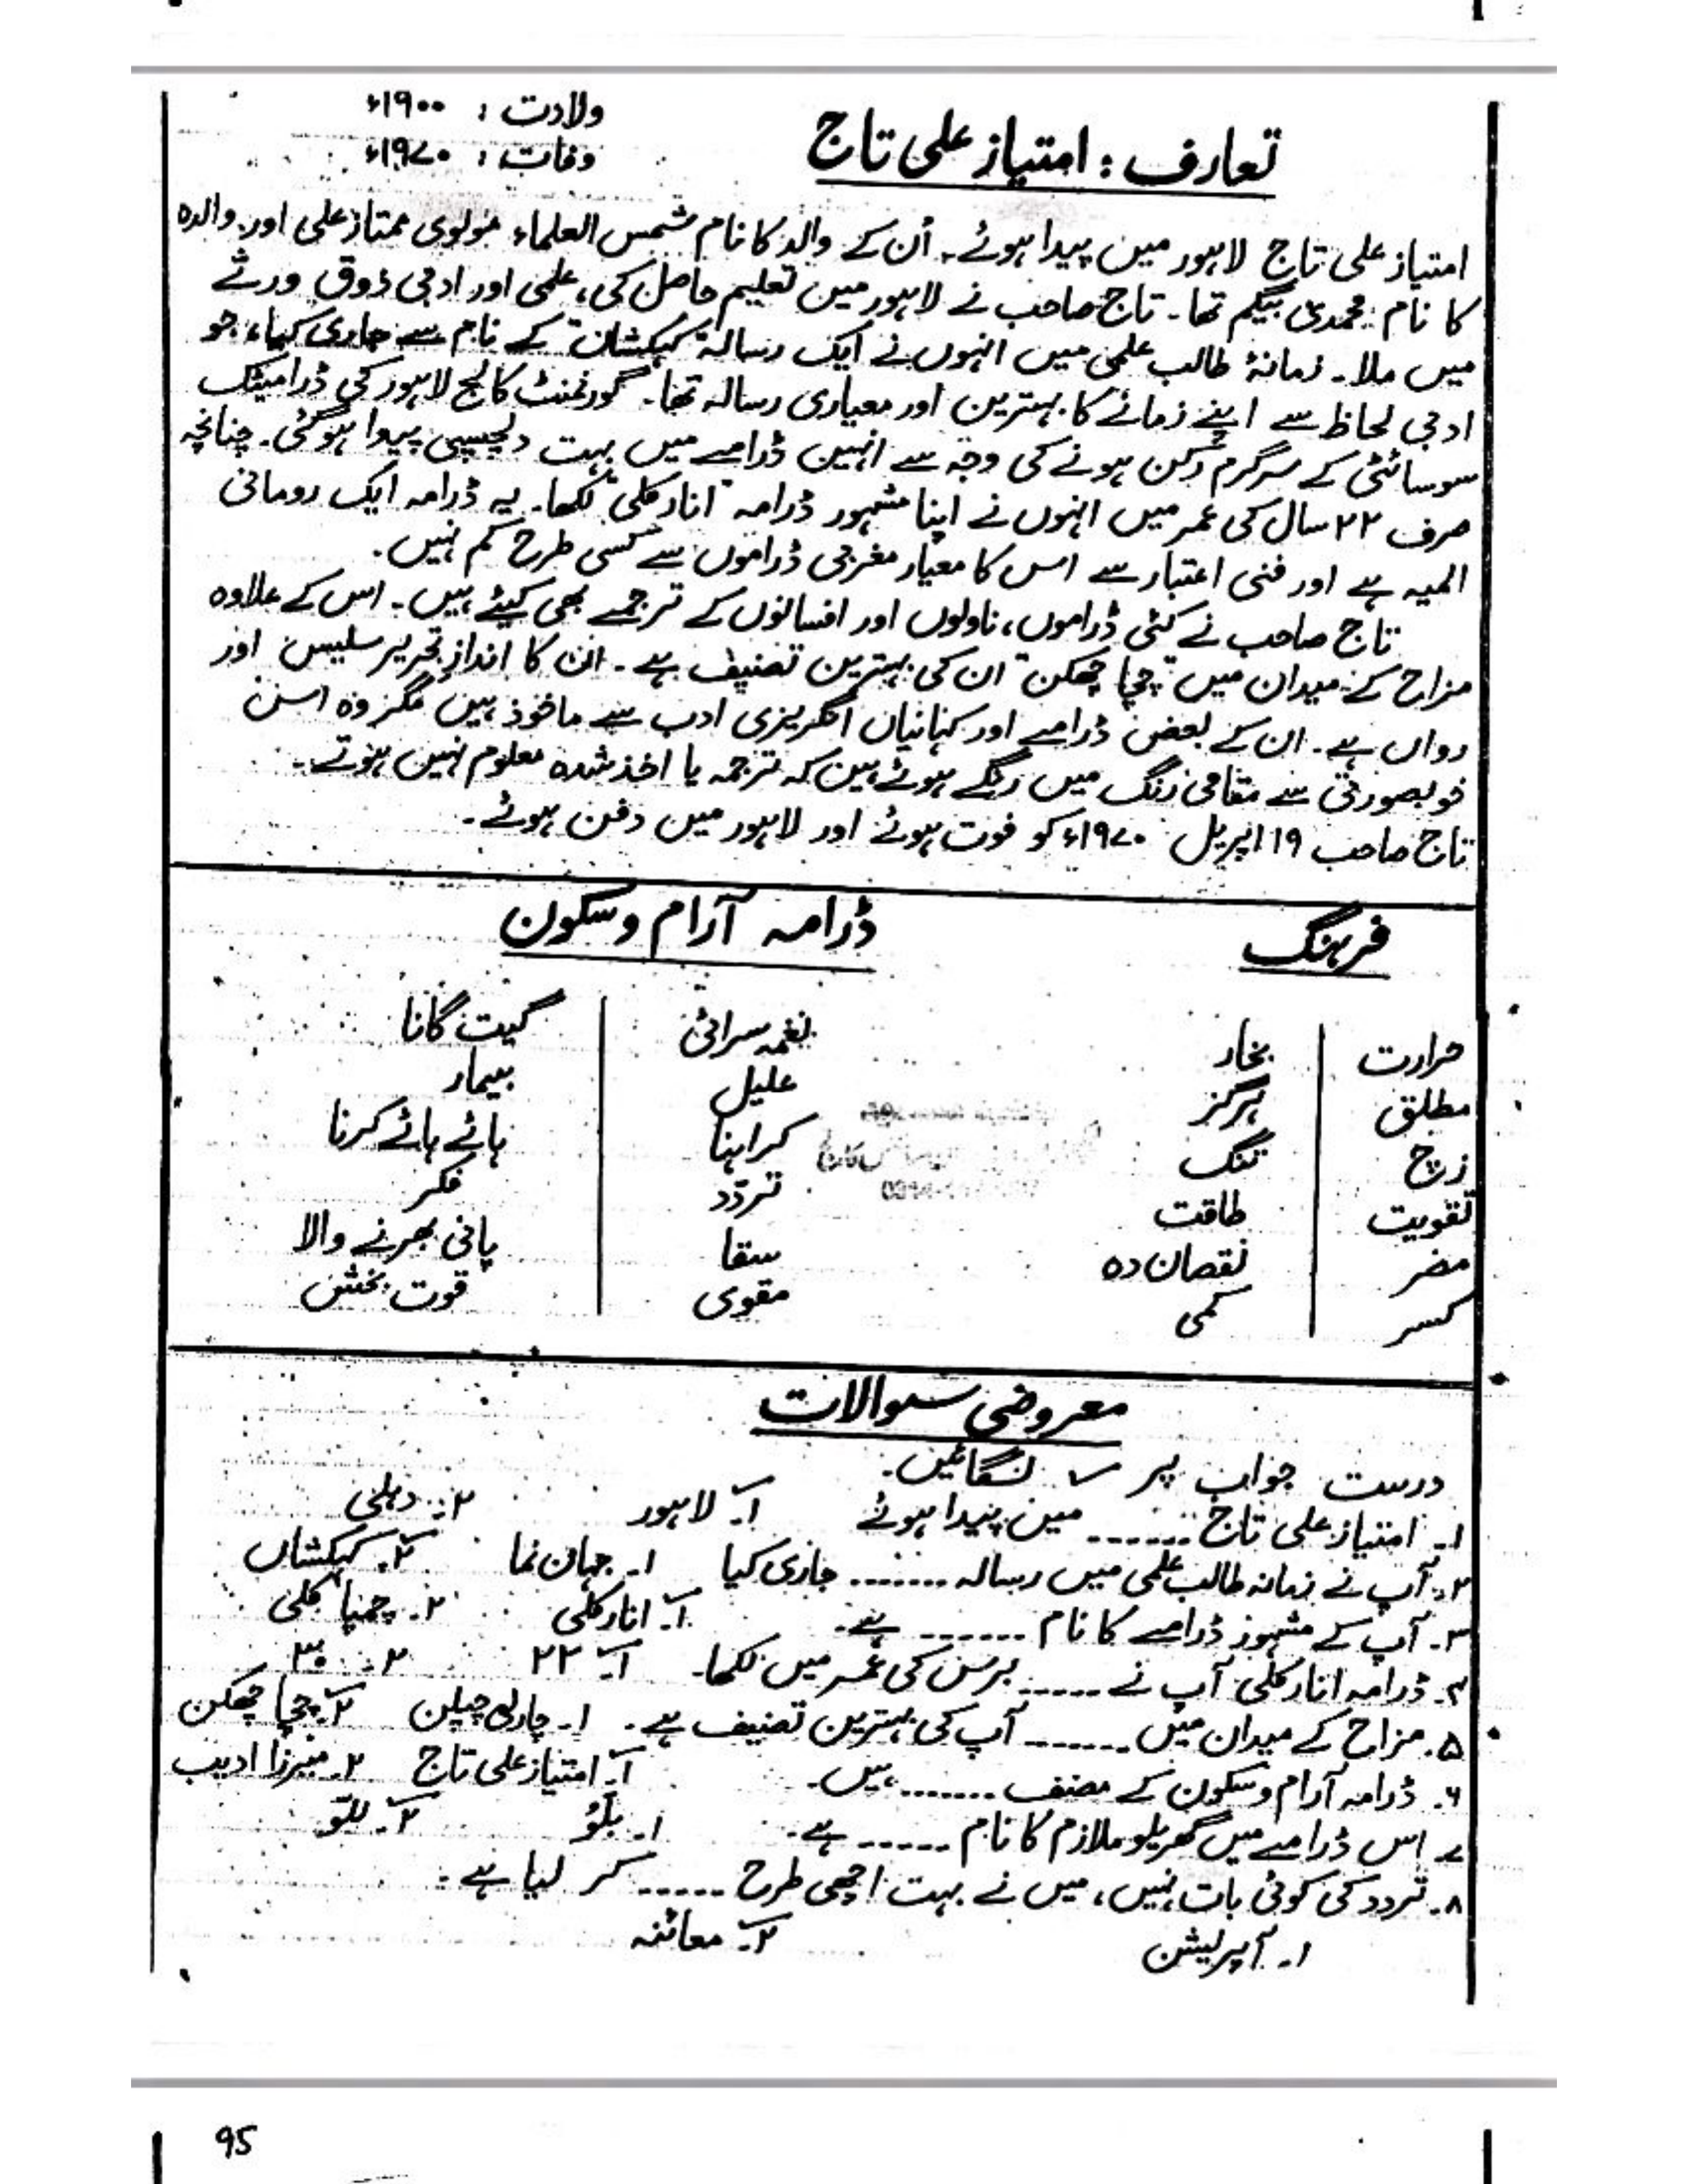 تعارف : امتیاز علی تاج
ولادت : ۱۹۰۰ء
وفات : ۱۹۷۰ء
امتیاز علی تاج لاہور میں پیدا ہوئے۔ اُن کے والد کا نام شمس العلماء مولوی ممتاز علی اور والدہ
کا نام محمدی بیگم تھا۔ تاج صاحب نے لاہور میں تعلیم حاصل کی، علمی اور ادبی ذوق ورثے
میں ملا۔ زمانۂ طالب علمی میں انہوں نے ایک رسالہ "کہکشاں" کے نام سے جاری کیا، جو
ادبی لحاظ سے اپنے زمانے کا بہترین اور معیاری رسالہ تھا۔ گورنمنٹ کالج لاہور کی ڈرامیٹک
سوسائٹی کے سرگرم رُکن ہونے کی وجہ سے انہیں ڈرامے میں بہت دلچسپی پیدا ہوگئی۔ چنانچہ
صرف ۲۲ سال کی عمر میں انہوں نے اپنا مشہور ڈرامہ "انارکلی" لکھا۔ یہ ڈرامہ ایک رومانی
المیہ ہے اور فنی اعتبار سے اس کا معیار مغربی ڈراموں سے کسی طرح کم نہیں۔
تاج صاحب نے کئی ڈراموں، ناولوں اور افسانوں کے ترجمے بھی کیئے ہیں۔ اس کے علاوہ
مزاح کے میدان میں "چچا چھکن" ان کی بہترین تصنیف ہے۔ ان کا اندازِ تحریر سلیس اور
رواں ہے۔ ان کے بعض ڈرامے اور کہانیاں انگریزی ادب سے ماخوذ ہیں مگر وہ اس
خوبصورتی سے مقامی رنگ میں رنگے ہوئے ہیں کہ ترجمہ یا اخذ شدہ معلوم نہیں ہوتے۔
تاج صاحب ۱۹ اپریل ۱۹۷۰ء کو فوت ہوئے اور لاہور میں دفن ہوئے۔
فرہنگ ڈرامہ آرام و سکون
حرارت بخار نغمہ سرائی گیت گانا
مطلق ہرگز علیل بیمار
زچ تنگ کراہنا ہائے ہائے کرنا
تقویت طاقت تردّد فکر
مضر نقصان دہ سقا پانی بھرنے والا
کسر کمی مقوی قوت بخش
معروضی سوالات
درست جواب پر ✓ لگائیں۔
۱۔ امتیاز علی تاج ....... میں پیدا ہوئے ۱۔ لاہور ۲۔ دہلی
۲۔ آپ نے زمانہ طالب علمی میں رسالہ ....... جاری کیا ۱۔ جہان نما ۲۔ کہکشاں
۳۔ آپ کے مشہور ڈرامے کا نام ....... ہے۔ ۱۔ انارکلی ۲۔ چمپا کلی
۴۔ ڈرامہ انارکلی آپ نے ..... برس کی عمر میں لکھا۔ ۱۔ ۲۲ ۲۔ ۳۰
۵۔ مزاح کے میدان میں ....... آپ کی بہترین تصنیف ہے۔ ۱۔ چارلی چپلن ۲۔ چچا چھکن
۶۔ ڈرامہ آرام و سکون کے مصنف ....... ہیں۔ ۱۔ امتیاز علی تاج ۲۔ میرزا ادیب
۷۔ اس ڈرامے میں گھریلو ملازم کا نام ...... ہے۔ ۱۔ بلّو ۲۔ للّو
۸۔ تردد کی کوئی بات نہیں، میں نے بہت اچھی طرح ...... کر لیا ہے۔
۱۔ آپریشن ۲۔ معائنہ
95